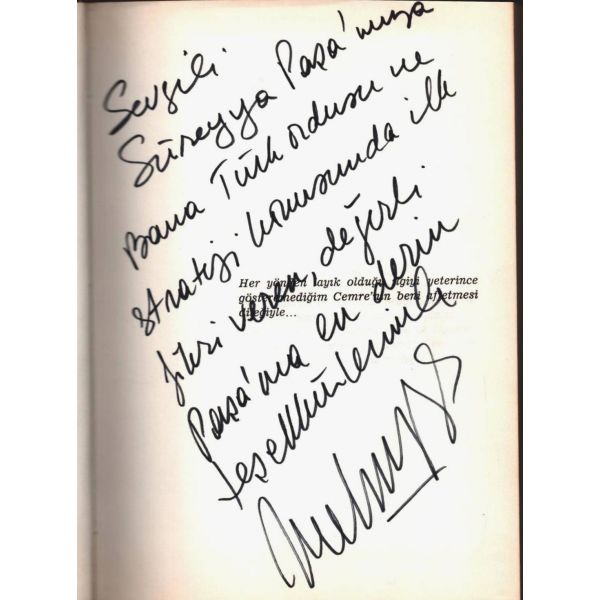 Sevgili
Süreyya Paşa'mıza
Bana Türk ordusu ve
strateji konusunda ilk
fikri veren, değerli
Paşa'ma en derin
teşekkürlerimle
Her yönden layık olduğu ilgiyi yeterince
gösteremediğim Cemre'nin beni affetmesi
dileğiyle...